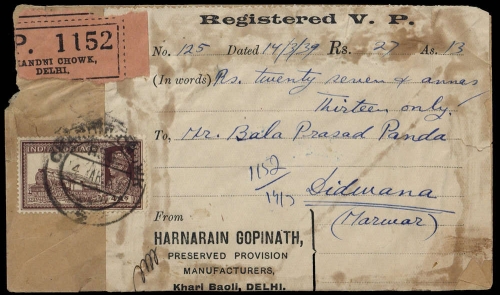 Registered V. P.
P. 1152
CHANDNI CHOWK,
DELHI,
No. 125 Dated 14/3/39 Rs. 27 As. 13
(In words) Rs. twenty seven & annes
Thirteen only.
To, Mr. Bala Prasad Panda
1152
14/3
Didwana
(Marwar)
INDIA POSTAGE
From
HARNARAIN GOPINATH,
PRESERVED PROVISION
MANUFACTURERS,
Khari Baoli, DELHI.